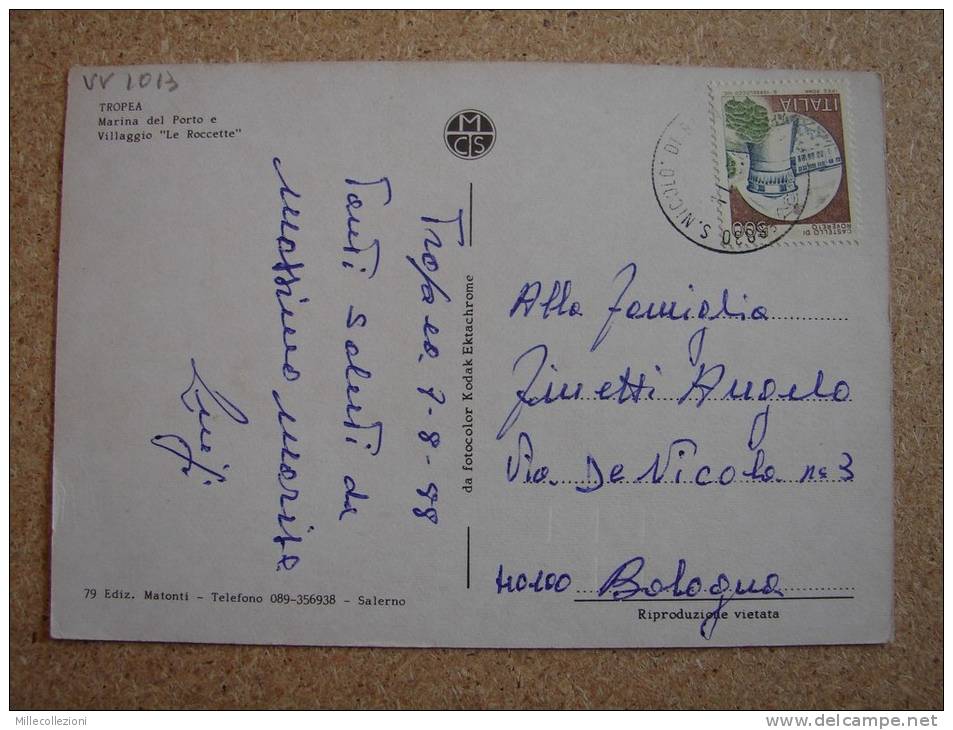 VV 1013
TROPEA
Marina del Porto e
Villaggio "Le Roccette"
MCS
Tropea 7-8-88
Tanti Saluti da
Massimo Marisa
Luigi
da fotocolor Kodak Ektachrome
79 Ediz. Matonti - Telefono 089-356938 - Salerno
ITALIA
CASTELLO DI
ROVERETO
S. NICOLO
Alla Famiglia
Zinetti Angelo
Via De Nicola n° 3
40100 Bologna
Riproduzione vietata
Millecollezioni
www.delcampe.net